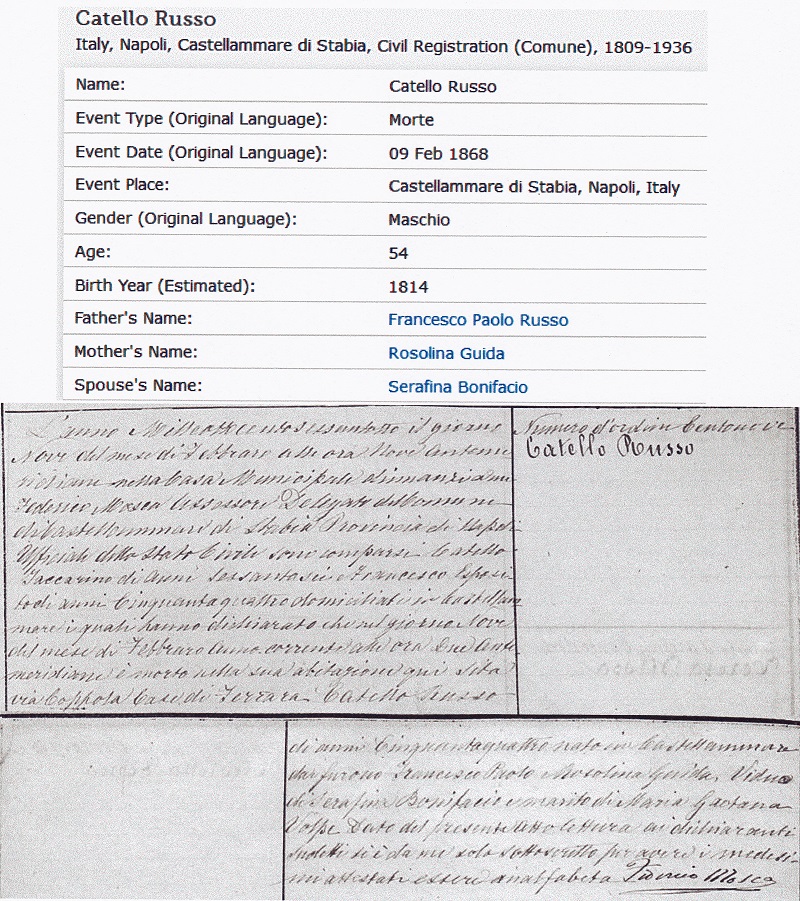 Catello Russo
Italy, Napoli, Castellammare di Stabia, Civil Registration (Comune), 1809-1936
Name: Catello Russo
Event Type (Original Language): Morte
Event Date (Original Language): 09 Feb 1868
Event Place: Castellammare di Stabia, Napoli, Italy
Gender (Original Language): Maschio
Age: 54
Birth Year (Estimated): 1814
Father's Name: Francesco Paolo Russo
Mother's Name: Rosolina Guida
Spouse's Name: Serafina Bonifacio
L'anno Milleottocentosessantotto il giorno
Nove del mese di Febbraro alle ore Nove Antime
ridiane nella Casa Municipale dinanzi a me
Federico Mosca Assessore Delegato del Comune
di Castellammare di Stabia Provincia di Napoli
Uffiziale dello Stato Civile sono comparsi Catello
Iaccarino di anni Sessantasei e Francesco Esposi
to di anni Cinquantaquattro domiciliati in Castellam
mare i quali hanno dichiarato che nel giorno Nove
del mese di Febbraro Anno corrente alle ore Due Anti
meridiane è morto nella sua abitazione qui sita
via Coppola Case di Ferrara Catello Russo
Numero d'ordin Centonove
Catello Russo
di anni Cinquantaquattro nato in Castellammare
dai furono Francesco Paolo e Rosolina Guida, Viduo
di Serafina Bonifacio e marito di Maria Gaetana
Volpe Dato del presente letto lettura ai dichiaranti
sudetti si è da me solo sottoscritto per avere i medesi
mi attestati essere analfabeta Federico Mosca